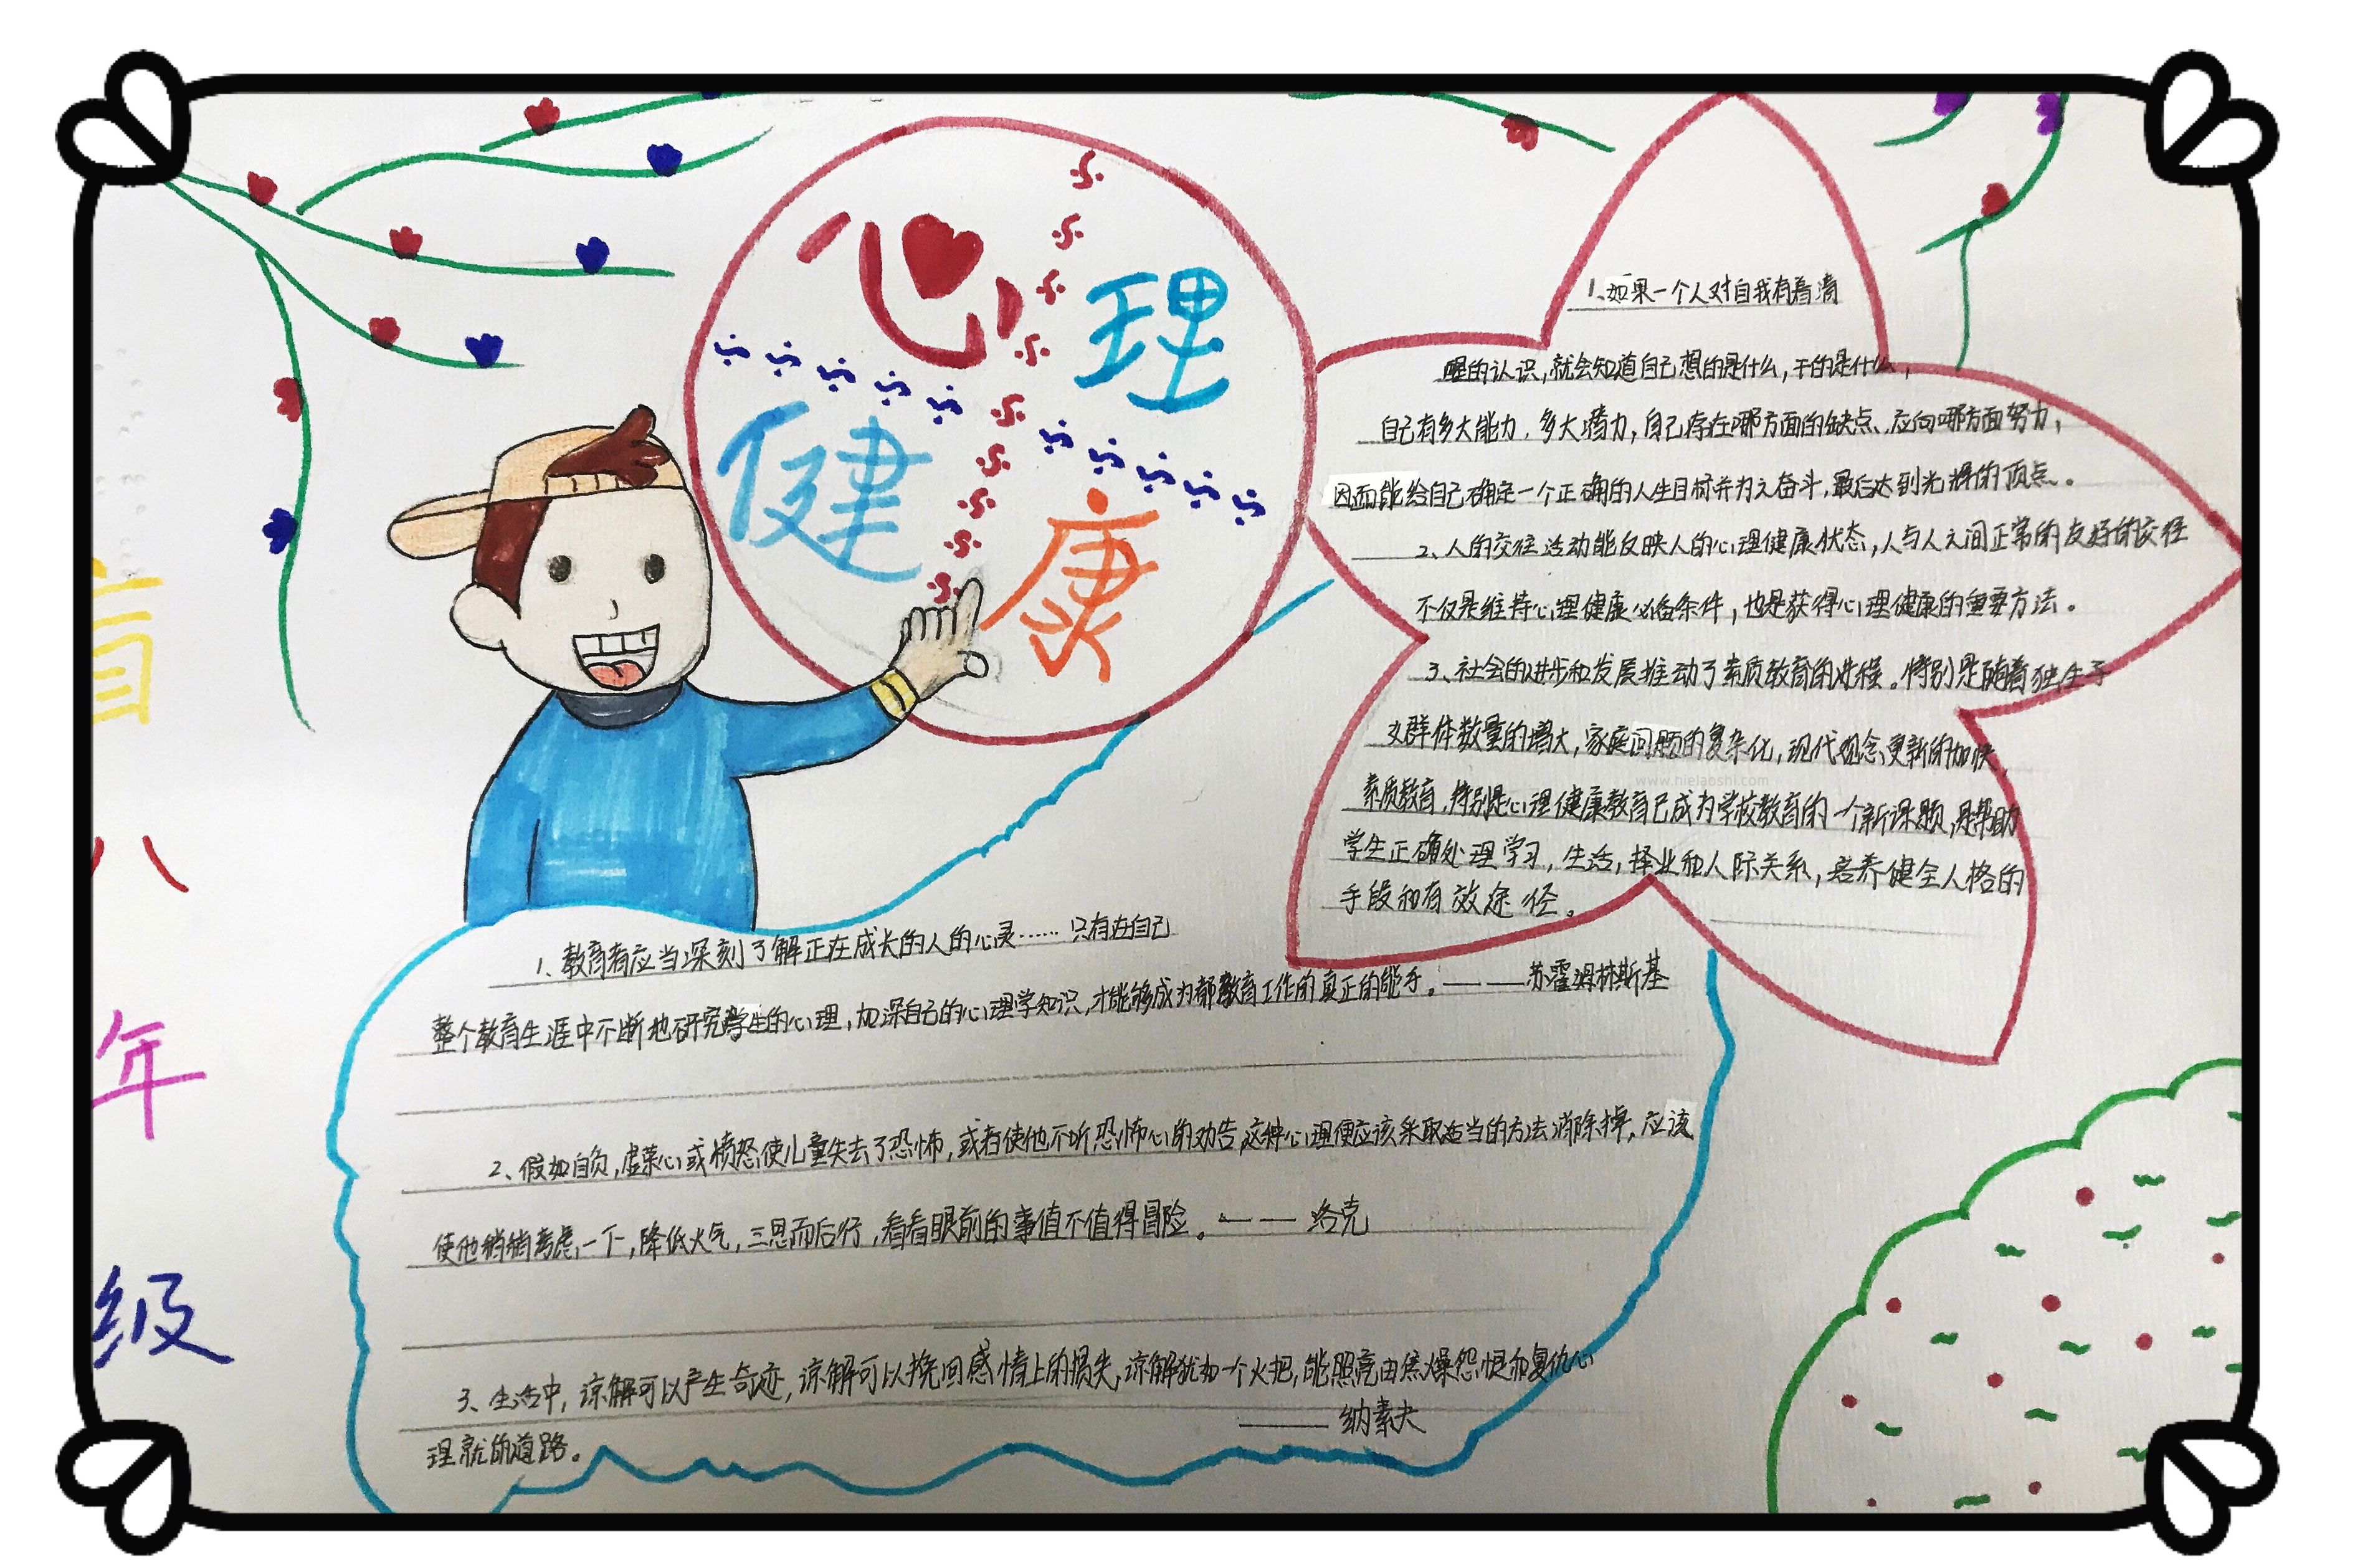 心理
健康
1、如果一个人对自我有着清
醒的认识,就会知道自己想的是什么,干的是什么,
自己有多大能力,多大潜力,自己存在哪方面的缺点、应向哪方面努力,
因而能给自己确定一个正确的人生目标并为之奋斗,最后达到光辉的顶点。
2、人的交往活动能反映人的心理健康状态,人与人之间正常的友好的交往
不仅是维持心理健康必备条件,也是获得心理健康的重要方法。
3、社会的进步和发展推动了素质教育的进程。特别是随着独生子
女群体数量的增大,家庭问题的复杂化,现代观念更新的加快,
www.hielaoshi.com
素质教育,特别是心理健康教育已成为学校教育的一个新课题,是帮助
学生正确处理学习,生活,择业和人际关系,培养健全人格的
手段和有效途径。
1、教育者应当深刻了解正在成长的人的心灵……只有在自己
整个教育生涯中不断地研究学生的心理,加深自己的心理学知识,才能够成为教育工作的真正的能手。——苏霍姆林斯基
2、假如自负,虚荣心或愤怒使儿童失去了恐怖,或者使他不听恐怖心的劝告,这种心理便应该采取适当的方法消除掉,应该
使他稍稍考虑一下,降低火气,三思而后行,看看眼前的事值不值得冒险。——洛克
3、生活中,谅解可以产生奇迹,谅解可以挽回感情上的损失,谅解犹如一个火把,能照亮由焦燥怨恨和复仇心
——纳素夫
理就的道路。
八
年
级